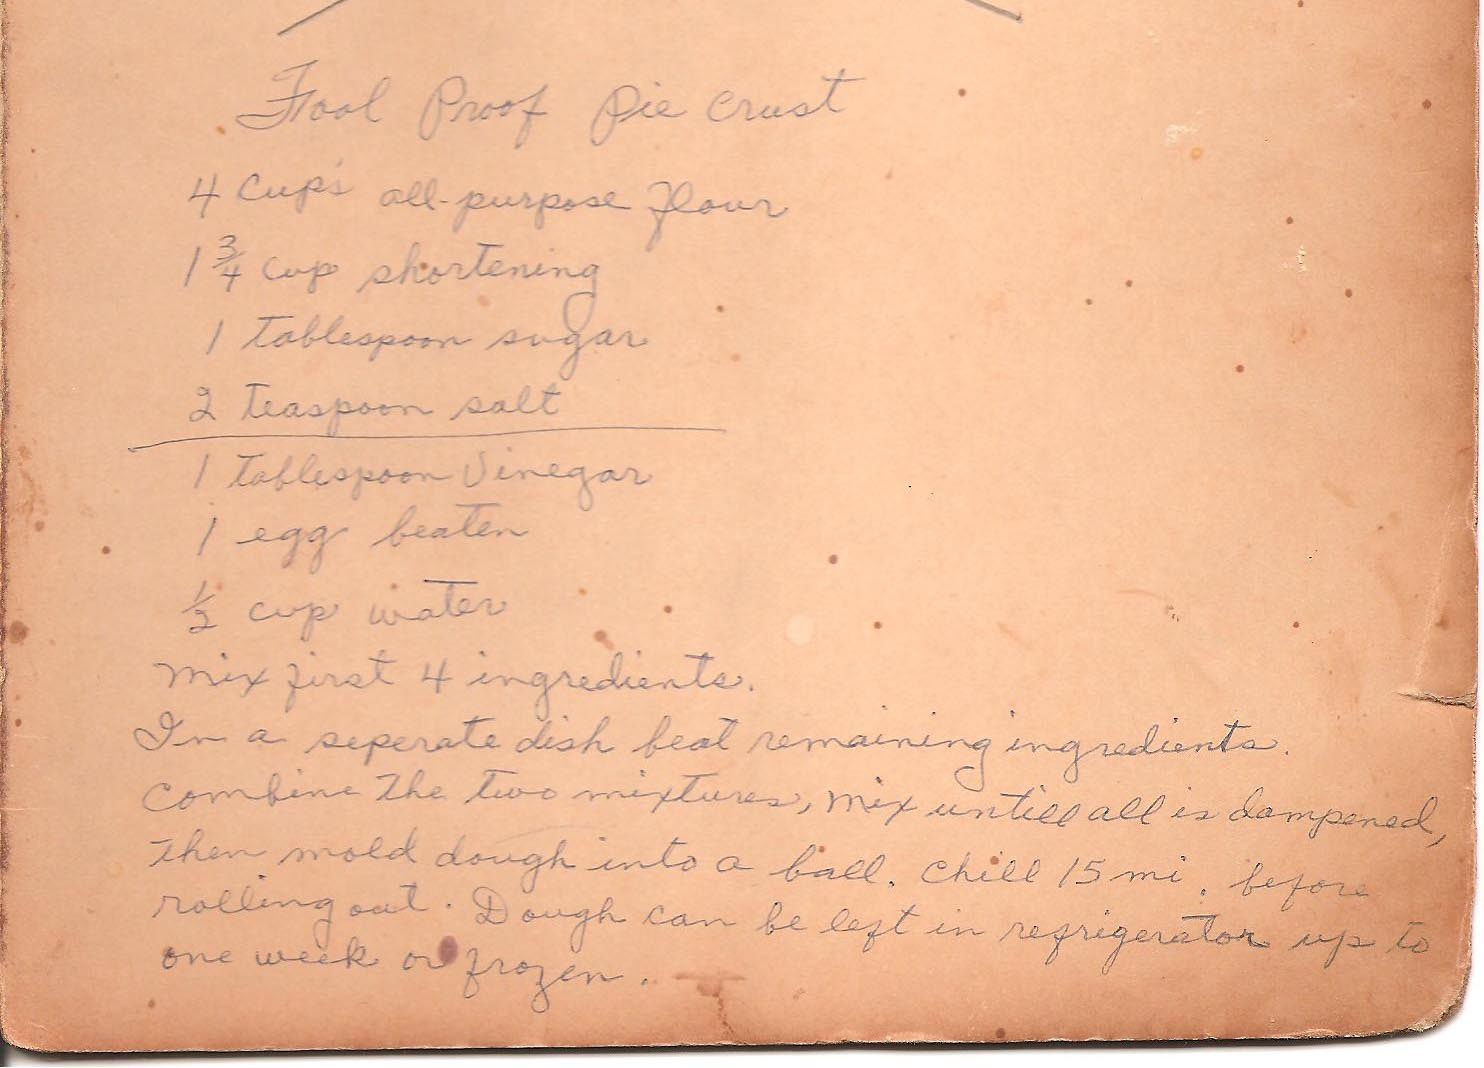 Fool Proof Pie Crust
4 Cup's all-purpose flour
1 3/4 cup shortening
1 tablespoon sugar
2 teaspoon salt
1 tablespoon Vinegar
1 egg beaten
1/2 cup water
Mix first 4 ingredients.
In a seperate dish beat remaining ingredients.
Combine the two mixtures, mix untill all is dampened,
then mold dough into a ball. Chill 15 mi. before
rolling out. Dough can be left in refrigerator up to
one week or frozen.